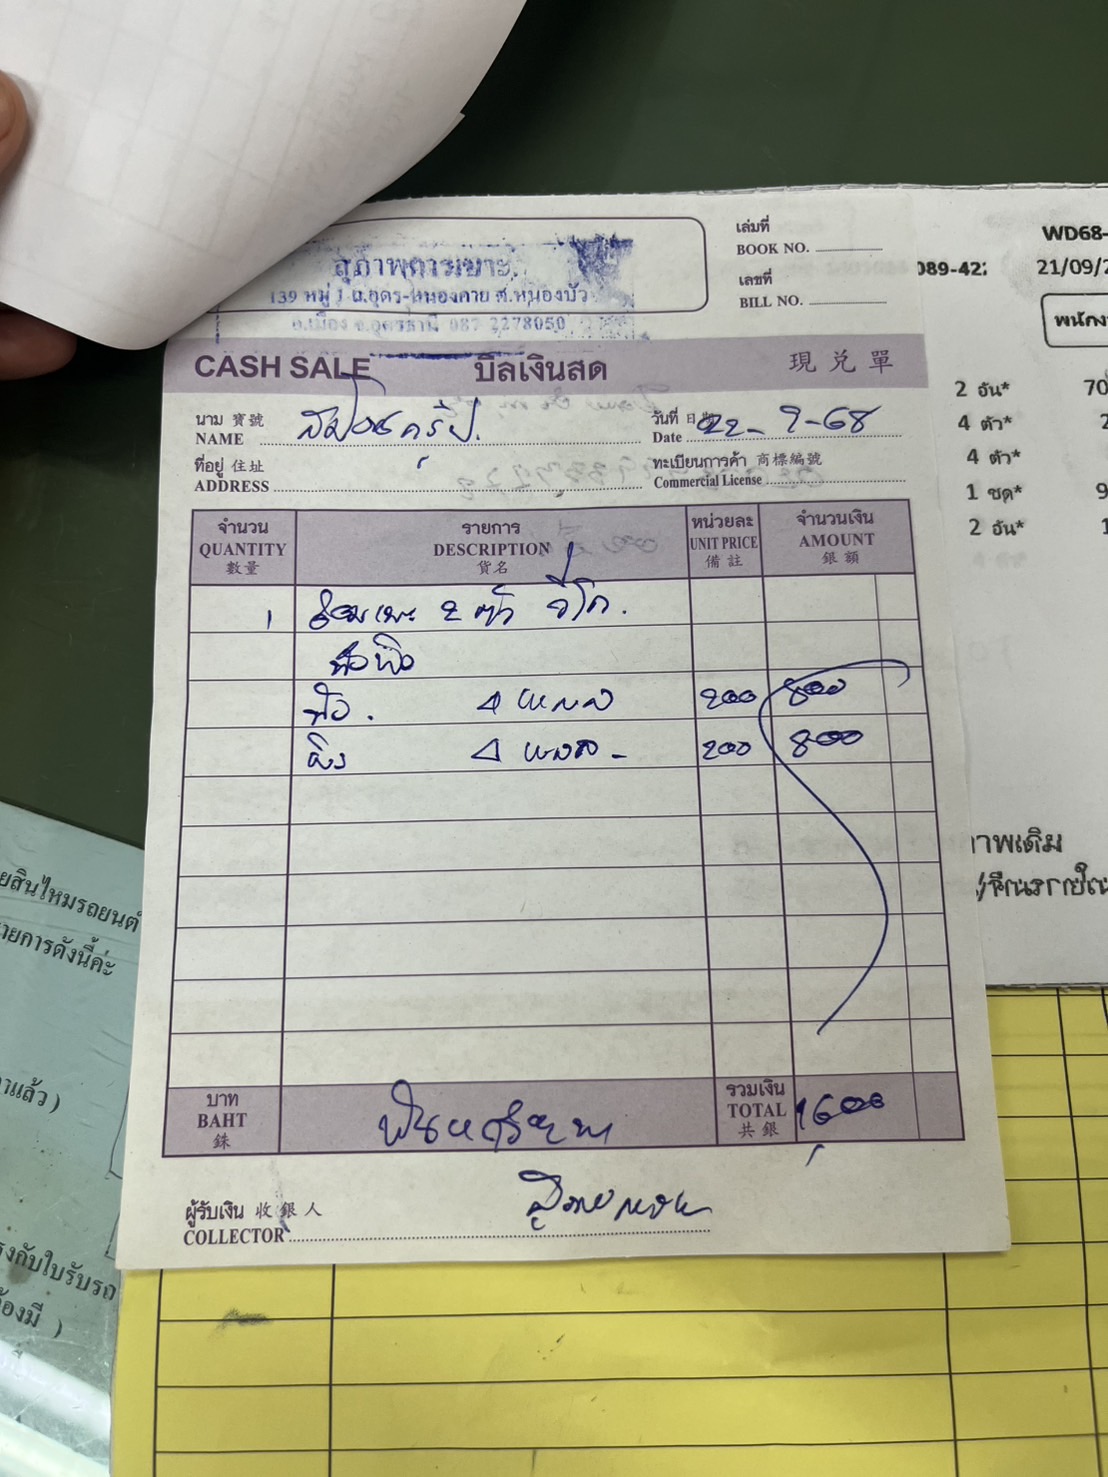 สุภาพการเบาะ
139 หมู่ 1 ถ.อุดร-หนองคาย ต.หนองบัว
อ.เมือง จ.อุดรธานี 087 2278050
เล่มที่
BOOK NO.
เลขที่
BILL NO.
CASH SALE บิลเงินสด 現兌單
นาม 寶號
NAME
วันที่ 日期
Date 22-9-68
ที่อยู่ 住址
ADDRESS
ทะเบียนการค้า 商標編號
Commercial License
จำนวน รายการ หน่วยละ จำนวนเงิน
QUANTITY DESCRIPTION UNIT PRICE AMOUNT
數量 貨名 備註 銀額
1 ซ่อมเบาะ 2 ตัว
4 200 800
พิง 4 200 800
บาท รวมเงิน
BAHT TOTAL 1600
銖 共銀
ผู้รับเงิน 收銀人
COLLECTOR
WD68-
089-42
21/09/2
พนักง
2 อัน* 70
4 ตัว* 2
4 ตัว*
1 ชด* 9
2 อัน* 1
าพเดิม
ยสินไหมรถยนต์
ายการดังนี้ค่ะ
าแล้ว )
รงกับใบรับรถ
้องมี )